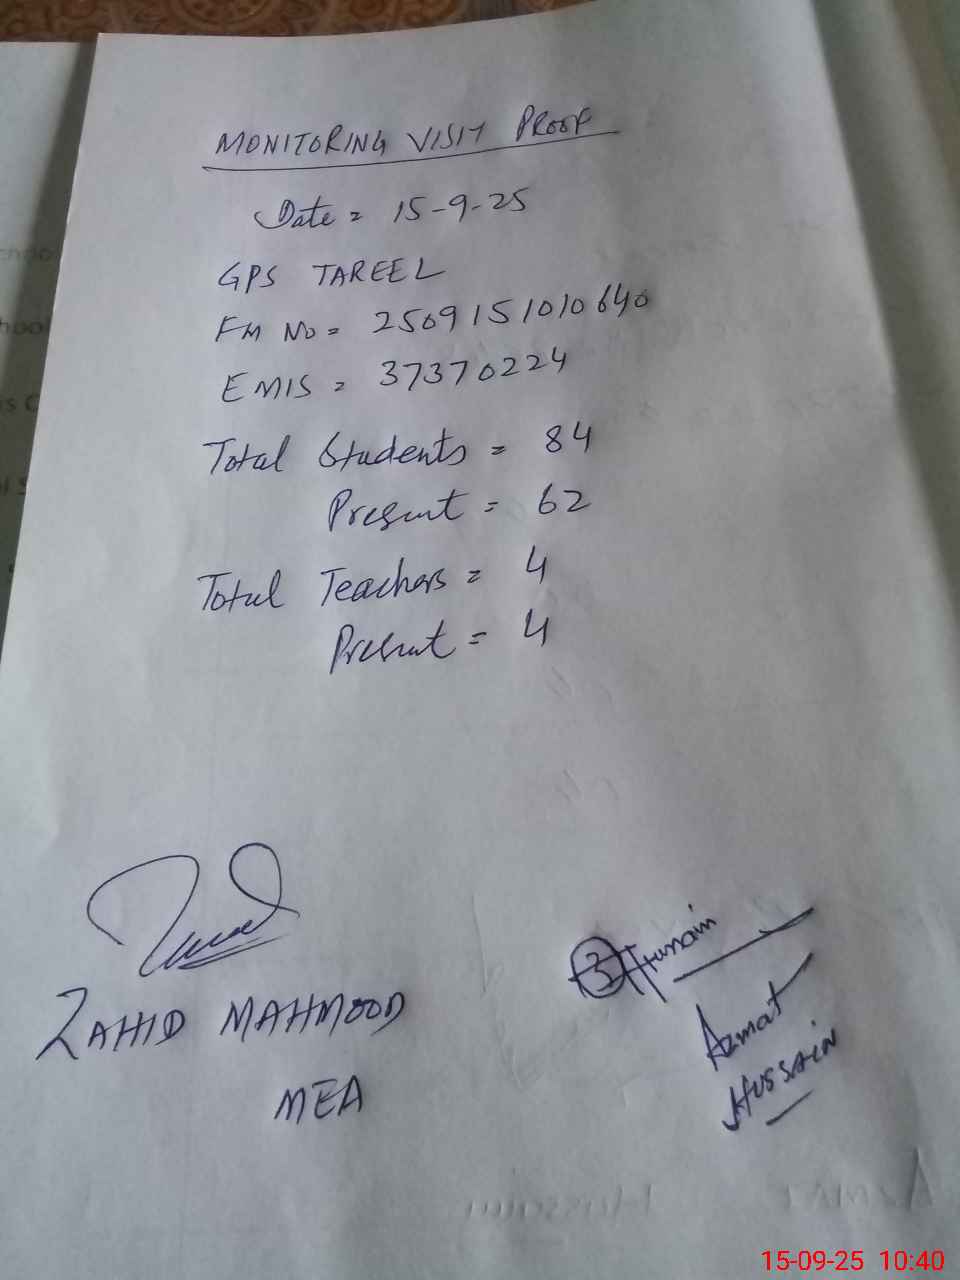 MONITORING VISIT PROOF
Date = 15-9-25
GPS TAREEL
FM No = 2509151010640
EMIS = 37370224
Total Students = 84
Present = 62
Total Teachers = 4
Present = 4
ZAHID MAHMOOD
MEA
Hussain
Azmat
HUSSAIN
15-09-25 10:40